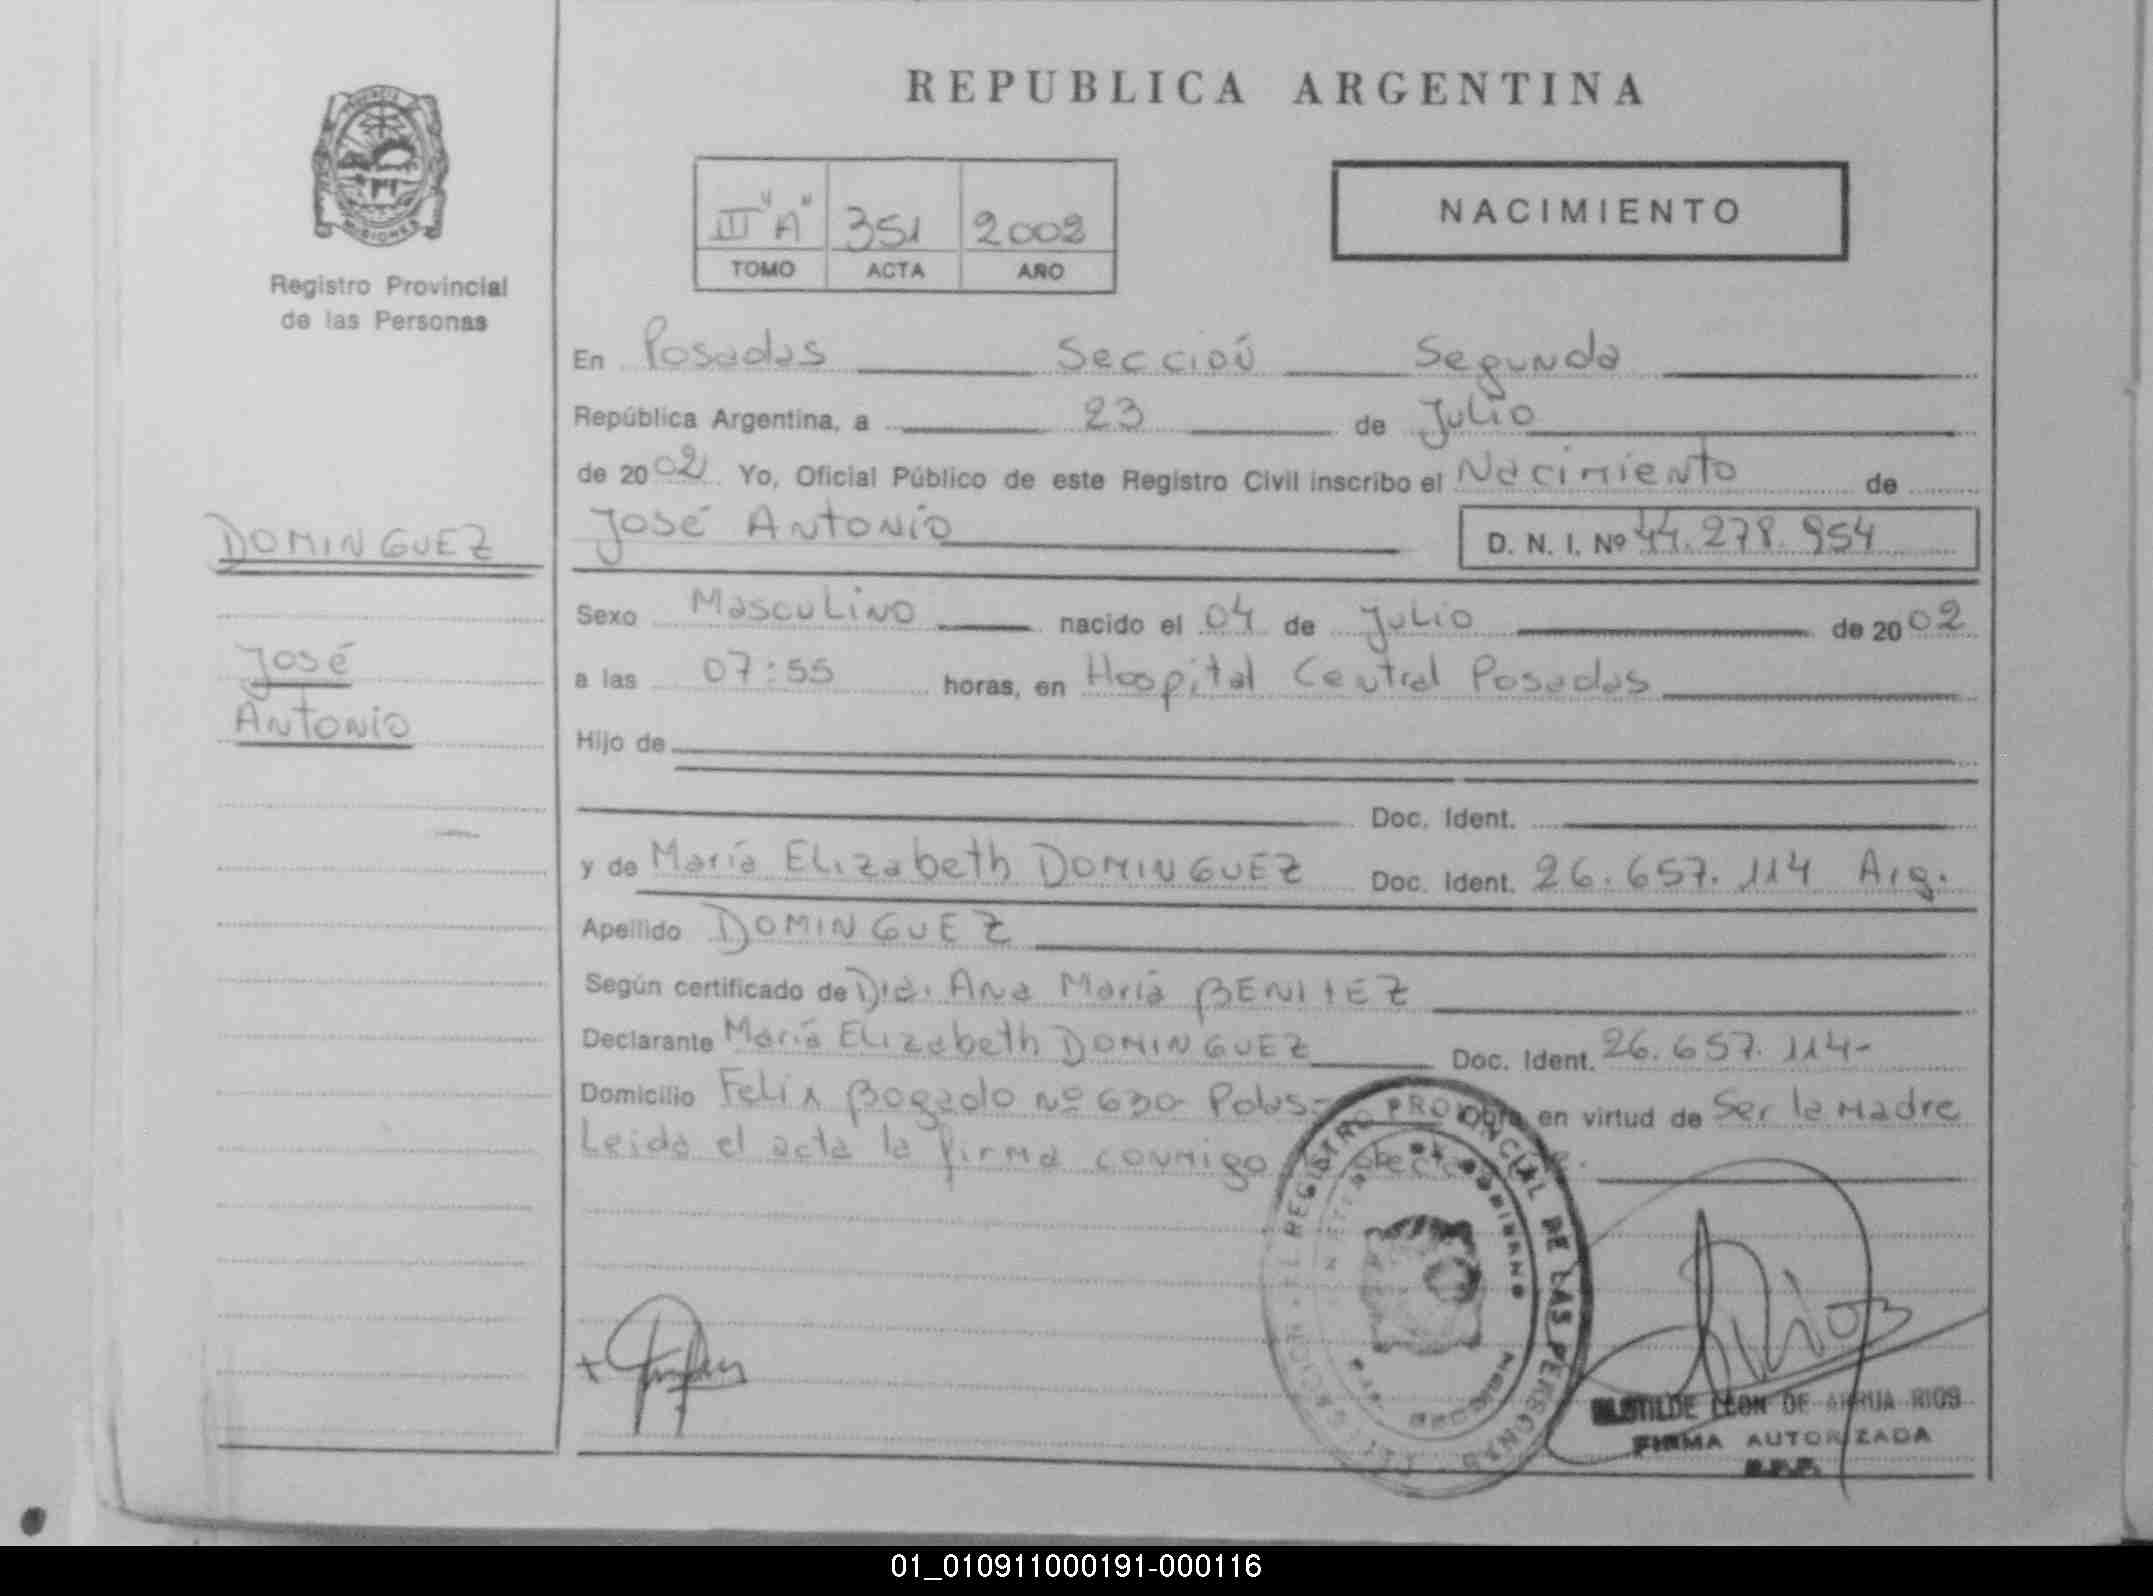 REPUBLICA ARGENTINA
MISIONES
Registro Provincial
de las Personas
III "A" 351 2002
TOMO ACTA AÑO
NACIMIENTO
En Posadas Sección Segunda
República Argentina, a 23 de Julio
de 2002 Yo, Oficial Público de este Registro Civil inscribo el Nacimiento de
DOMINGUEZ
José Antonio
José Antonio D. N. I. Nº 44.278.954
Sexo Masculino nacido el 04 de Julio de 2002
a las 07:55 horas, en Hospital Central Posadas
Hijo de
Doc. Ident.
y de María Elizabeth DOMINGUEZ Doc. Ident. 26.657.114 Arg.
Apellido DOMINGUEZ
Según certificado de Dra. Ana María BENITEZ
Declarante María Elizabeth DOMINGUEZ Doc. Ident. 26.657.114-
Domicilio Felix Bogado Nº 630 Pdas- Obra en virtud de Ser la Madre
Leida el acta la firma conmigo
REGISTRO PROVINCIAL DE LAS PERSONAS
LEON DE ARRUA RIOS
FIRMA AUTORIZADA
01_010911000191-000116